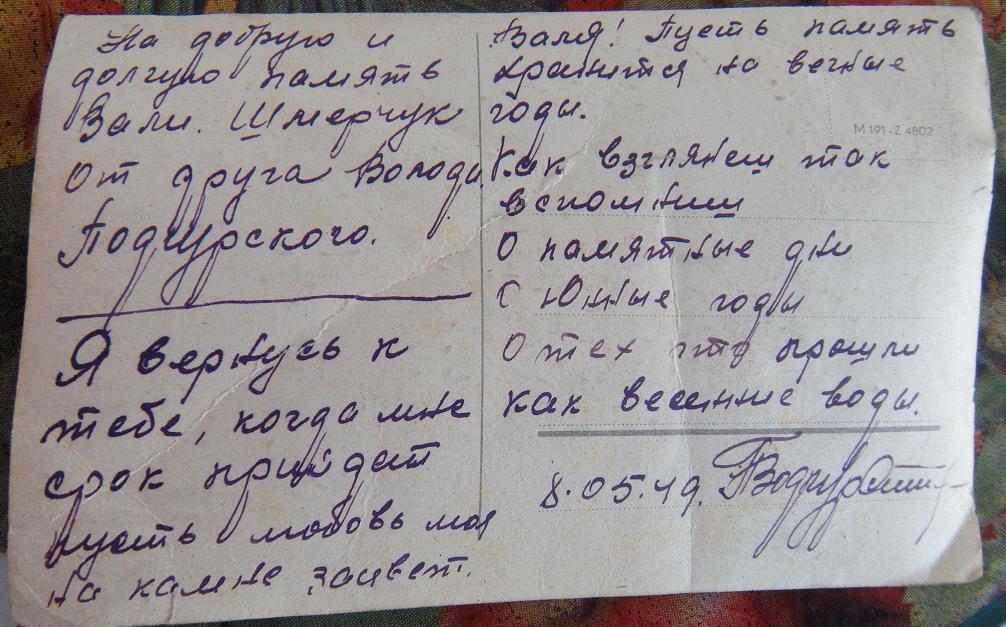 На добрую и
долгую память
Вали. Шмерчук
От друга Володи
Подгурского.
Я вернусь к
тебе, когда мне
срок прийдет
пусть любовь моя
на камне зацвет.
Валя! Пусть память
хранится на вечные
годы.
M 191 · Z 4802
Как взглянеш так
вспомниш
О памятные дни
О Юные годы
О тех что прошли
как весенние воды.
8.05.49.